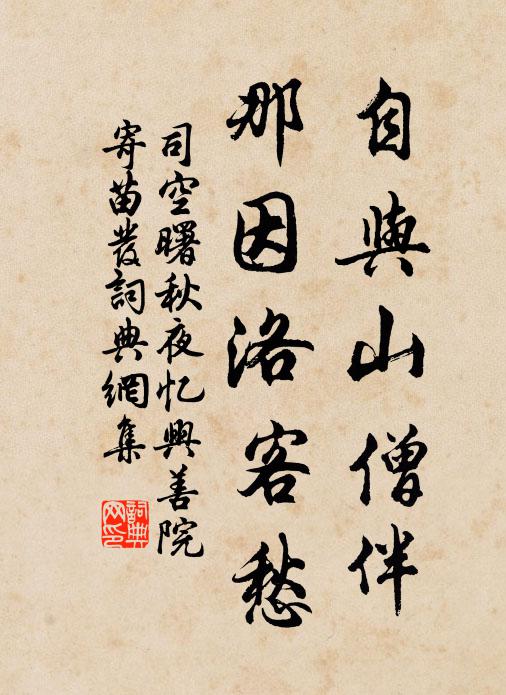 自與山僧伴
那因洛客愁
司空曙秋夜忆興善院
寄苗發詞典網集
詞典网印